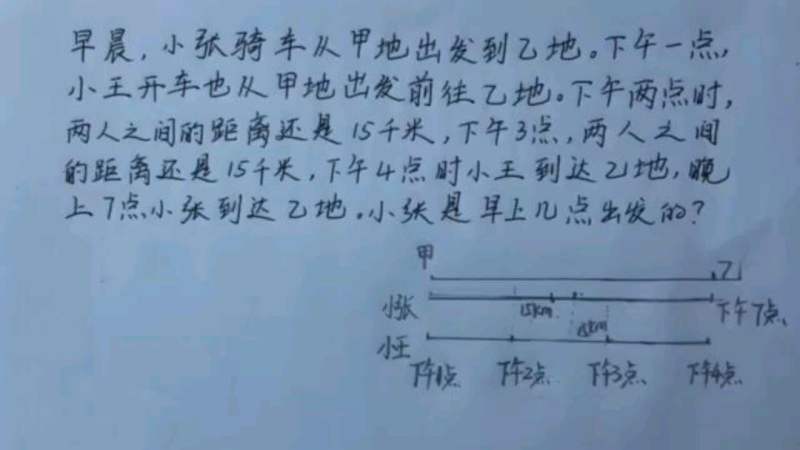 早晨，小张骑车从甲地出发到乙地。下午一点，
小王开车也从甲地出发前往乙地。下午两点时，
两人之间的距离还是15千米，下午3点，两人之间
的距离还是15千米，下午4点时小王到达乙地，晚
上7点小张到达乙地。小张是早上几点出发的？
甲 乙
小张 15km 15km 下午7点
小王
下午1点 下午2点 下午3点 下午4点